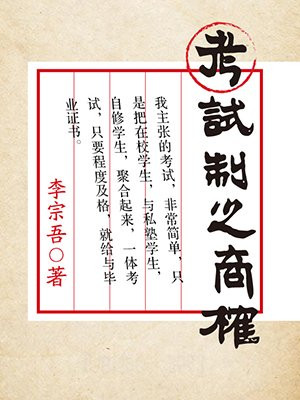 考試制之商榷
我主张的考试，非常简单，只
是把在校学生，与私塾学生，
自修学生，聚合起来，一体考
试，只要程度及格，就给与毕
业证书。
李宗吾○著